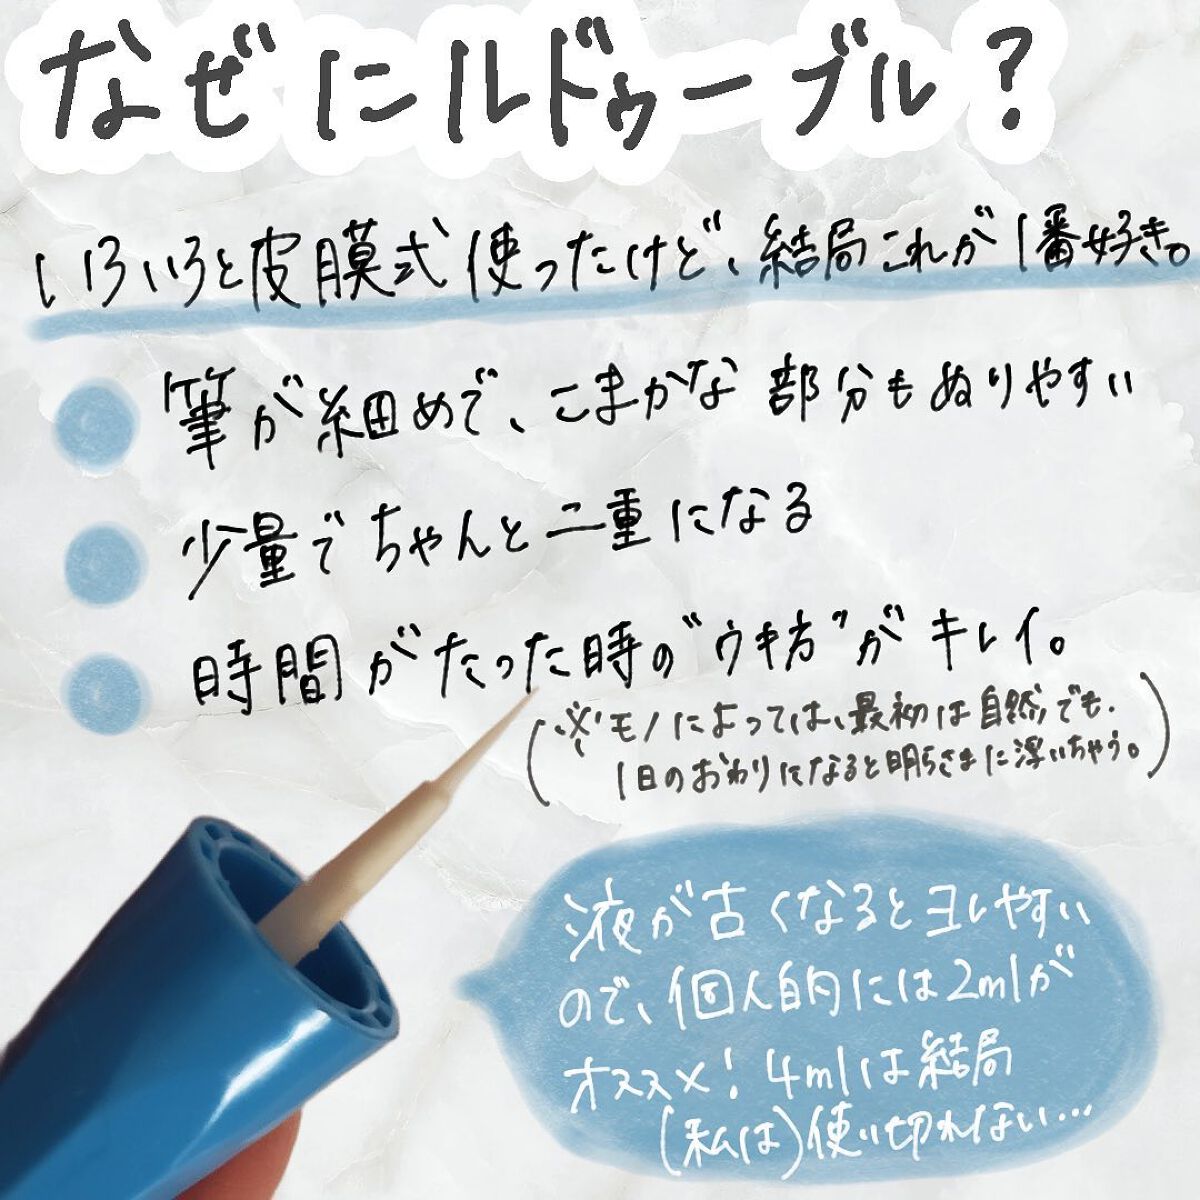 なぜにルドゥーブル?
いろいろと皮膜式使ったけど、結局これが1番好き。
筆が細めで、こまかな部分もぬりやすい
少量でちゃんと二重になる
時間がたった時の"ウキ方"がキレイ。
(※モノによっては、最初は自然でも、
1日のおわりになると明らさまに浮いちゃう。)
液が古くなるとヨレやすい
ので、個人的には2mlが
オススメ!4mlは結局
(私は)使い切れない…